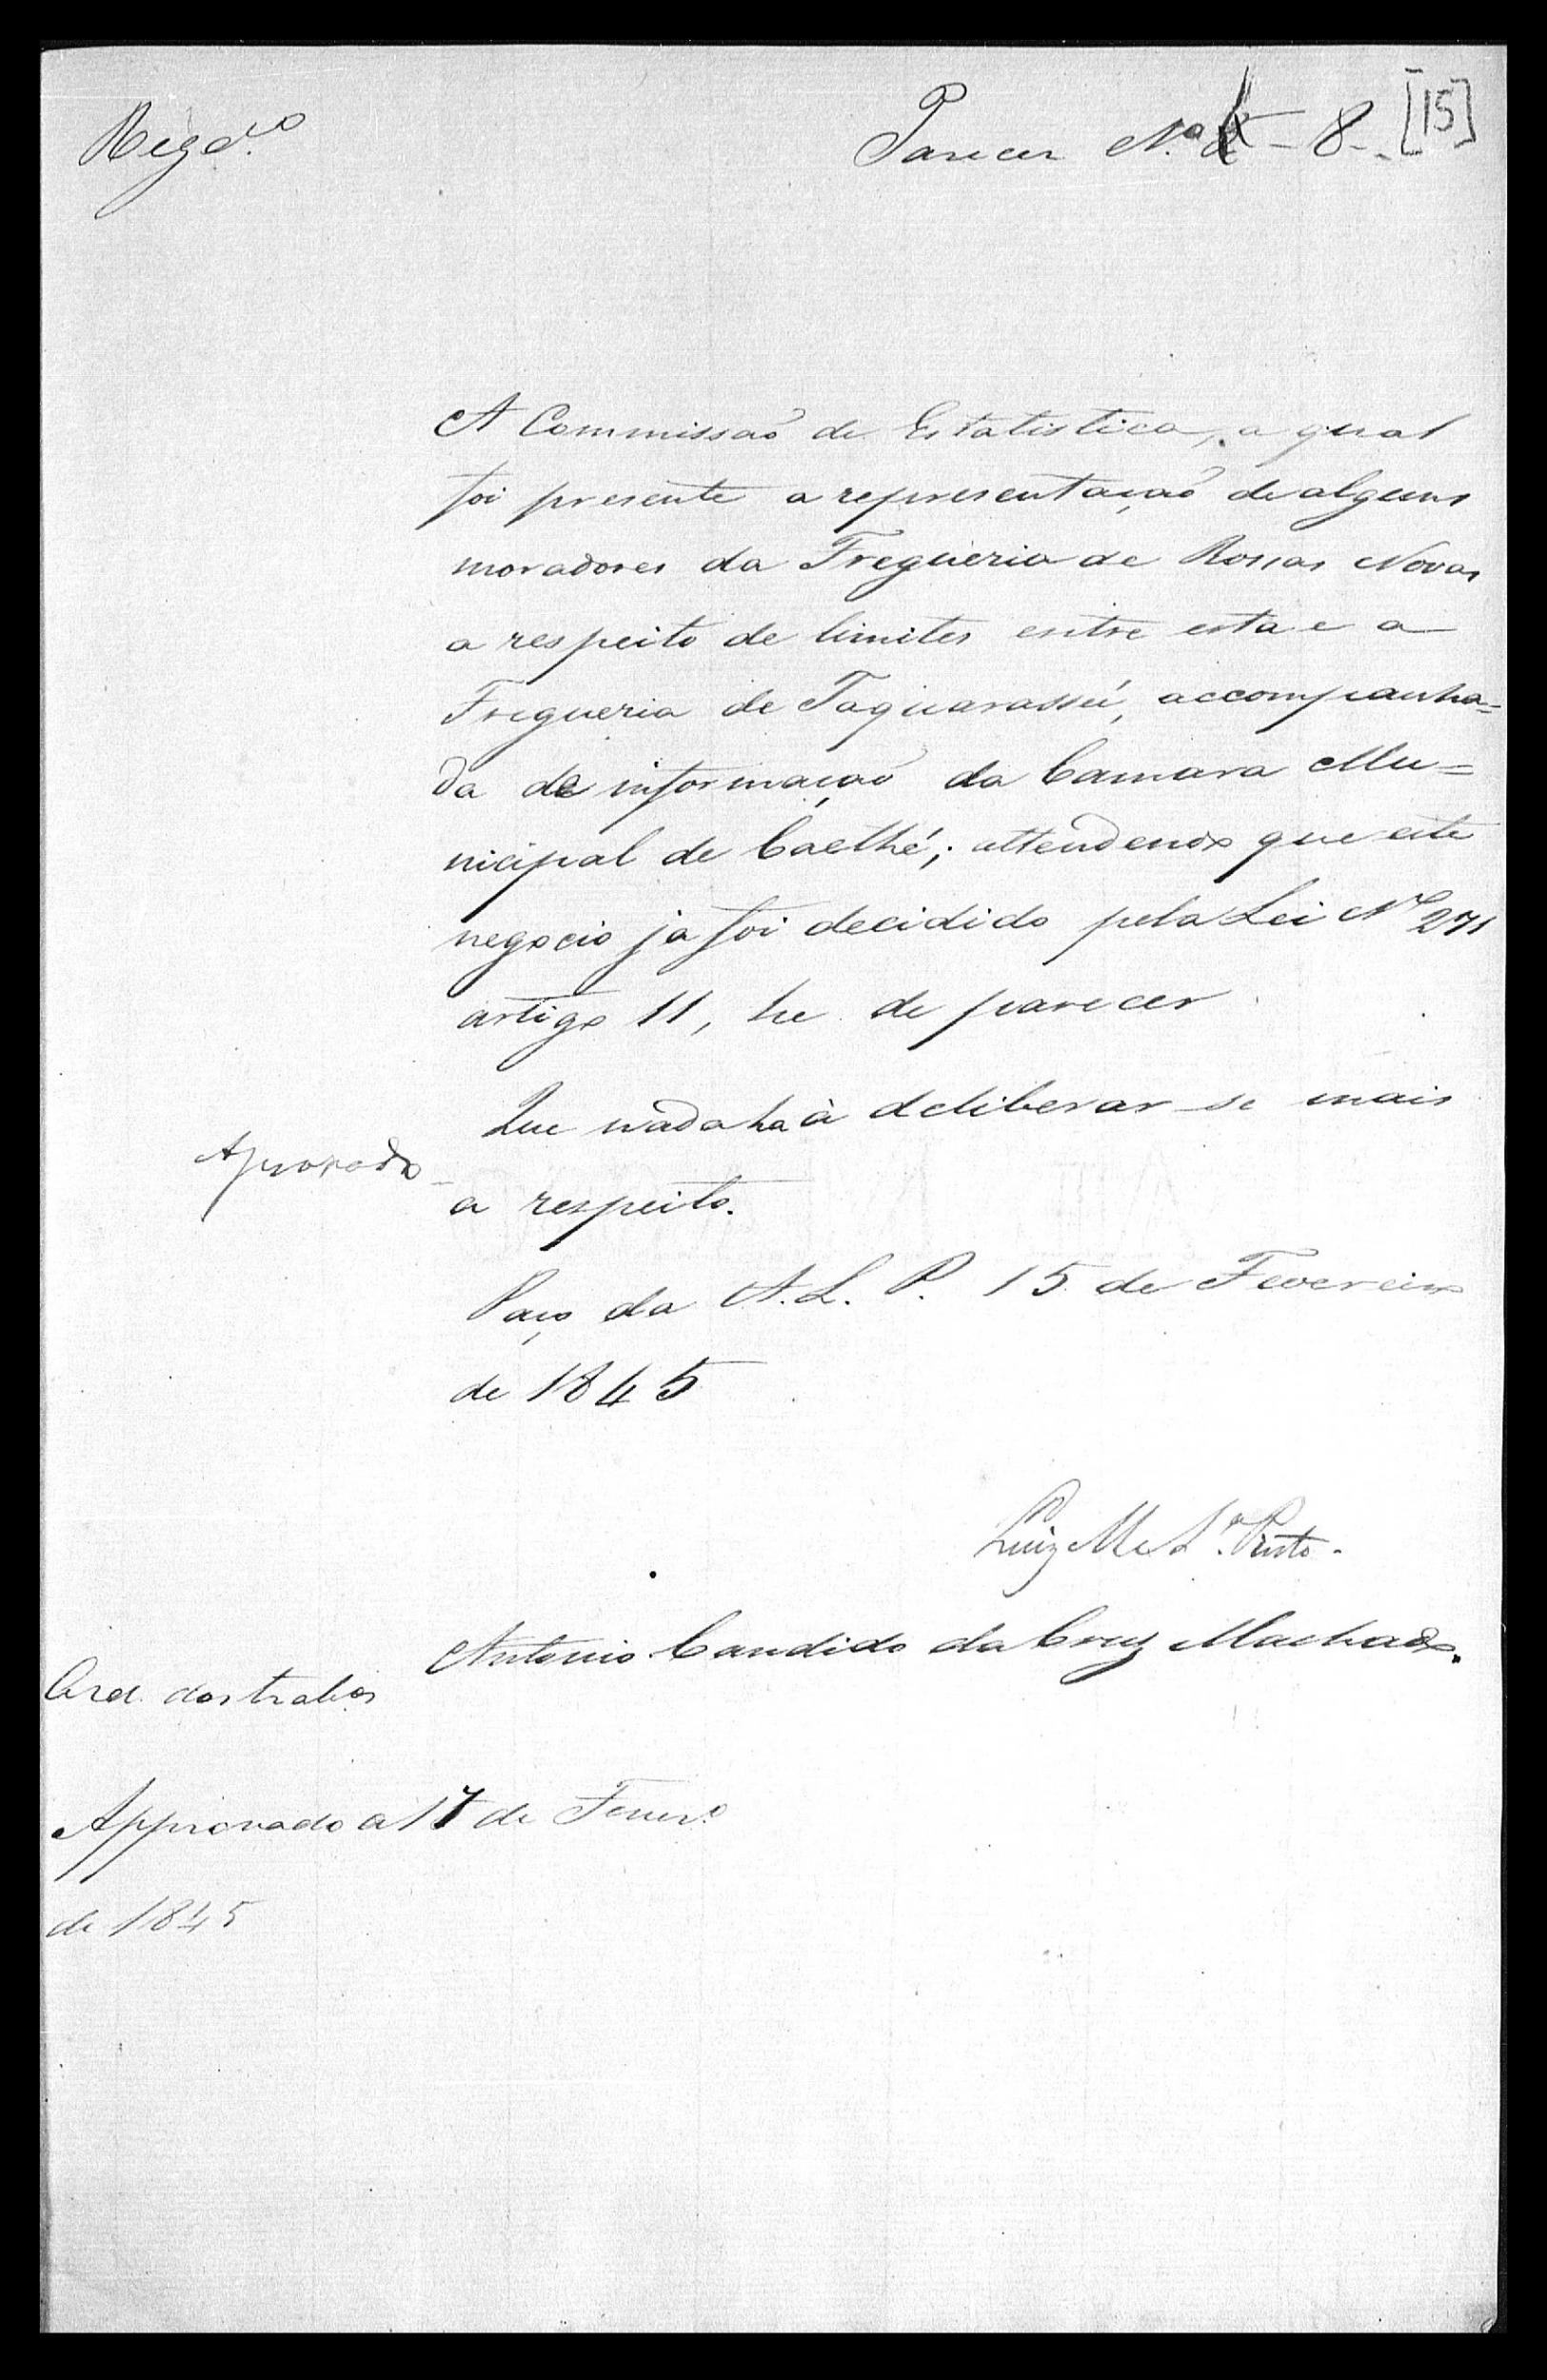 Regd.º
Parecer N.º - 8 - [15]
A Commissaõ de Estatistica, a qual
foi presente a representaçaõ de alguns
moradores da Fregueria de Rossas Novas
a respeito de limites entre esta e a
Fregueria de Taquarassú, accompanha=
da de informaçaõ da Camara Mu=
nicipal de Caethé; attendendo que este
negocio ja foi decidido pela Lei Nº 271
artigo 11, he de parecer
Que nada ha à deliberar-se mais
Aprovado
a respeito.
Paço da A. L. P. 15 de Fevereiro
de 1845
Luiz M. Pinto.
Antonio Candido da Cruz Machado.
Ord. dos trab.os
Approvado a 17 de Fever.º
de 1845